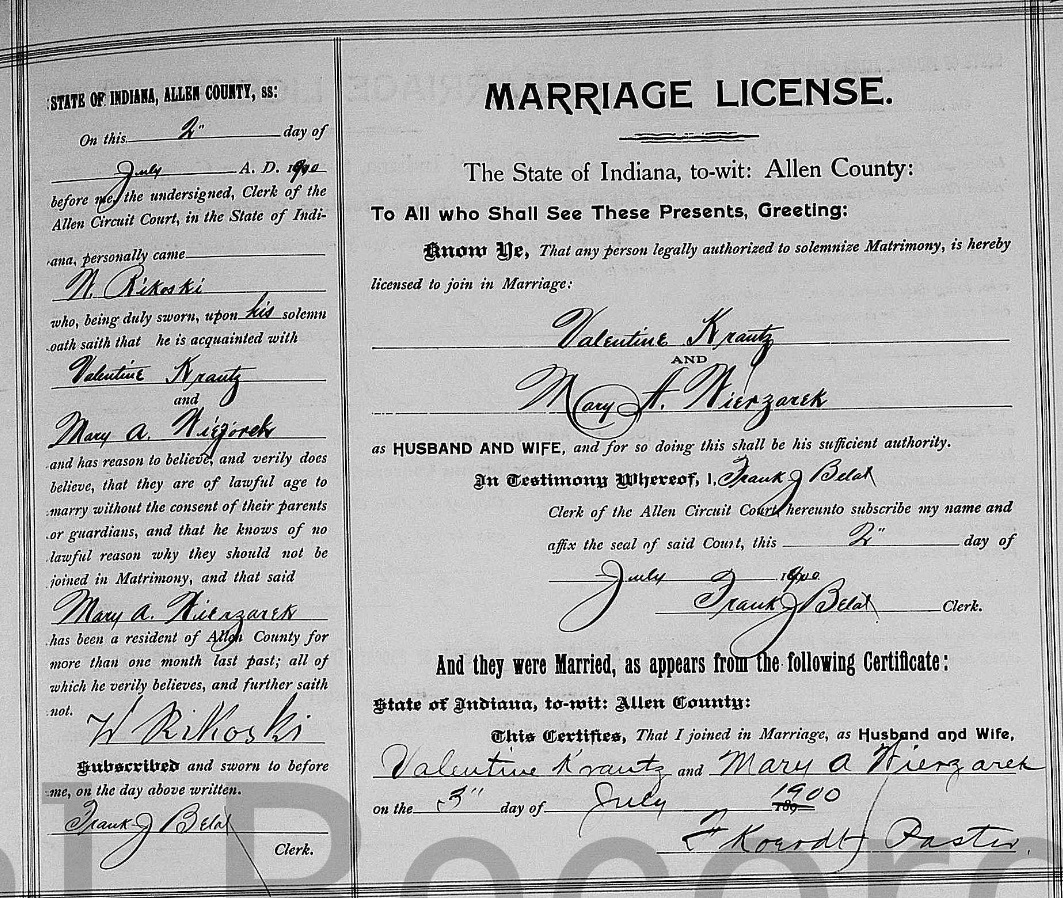 STATE OF INDIANA, ALLEN COUNTY, ss:
On this 2" day of
July A. D. 1900
before me, the undersigned, Clerk of the
Allen Circuit Court, in the State of Indi-
ana, personally came
W. Rikoski
who, being duly sworn, upon his solemn
oath saith that he is acquainted with
Valentine Krantz
and
Mary A. Wiezorek
and has reason to believe, and verily does
believe, that they are of lawful age to
marry without the consent of their parents
or guardians, and that he knows of no
lawful reason why they should not be
joined in Matrimony, and that said
Mary A. Wierzarek
has been a resident of Allen County for
more than one month last past; all of
which he verily believes, and further saith
not.
W Rikoski
Subscribed and sworn to before
me, on the day above written.
Frank J Belot
Clerk.
MARRIAGE LICENSE.
The State of Indiana, to-wit: Allen County:
To All who Shall See These Presents, Greeting:
Know Ye, That any person legally authorized to solemnize Matrimony, is hereby
licensed to join in Marriage:
Valentine Krantz
AND
Mary A. Wierzarek
as HUSBAND AND WIFE, and for so doing this shall be his sufficient authority.
In Testimony Whereof, I, Frank J Belot
Clerk of the Allen Circuit Court, hereunto subscribe my name and
affix the seal of said Court, this 2" day of
July 1900
Frank J Belot Clerk.
And they were Married, as appears from the following Certificate:
State of Indiana, to-wit: Allen County:
This Certifies, That I joined in Marriage, as Husband and Wife,
Valentine Krantz and Mary A Wierzarek
on the 3" day of July 1900
F Koerdt Pastor.